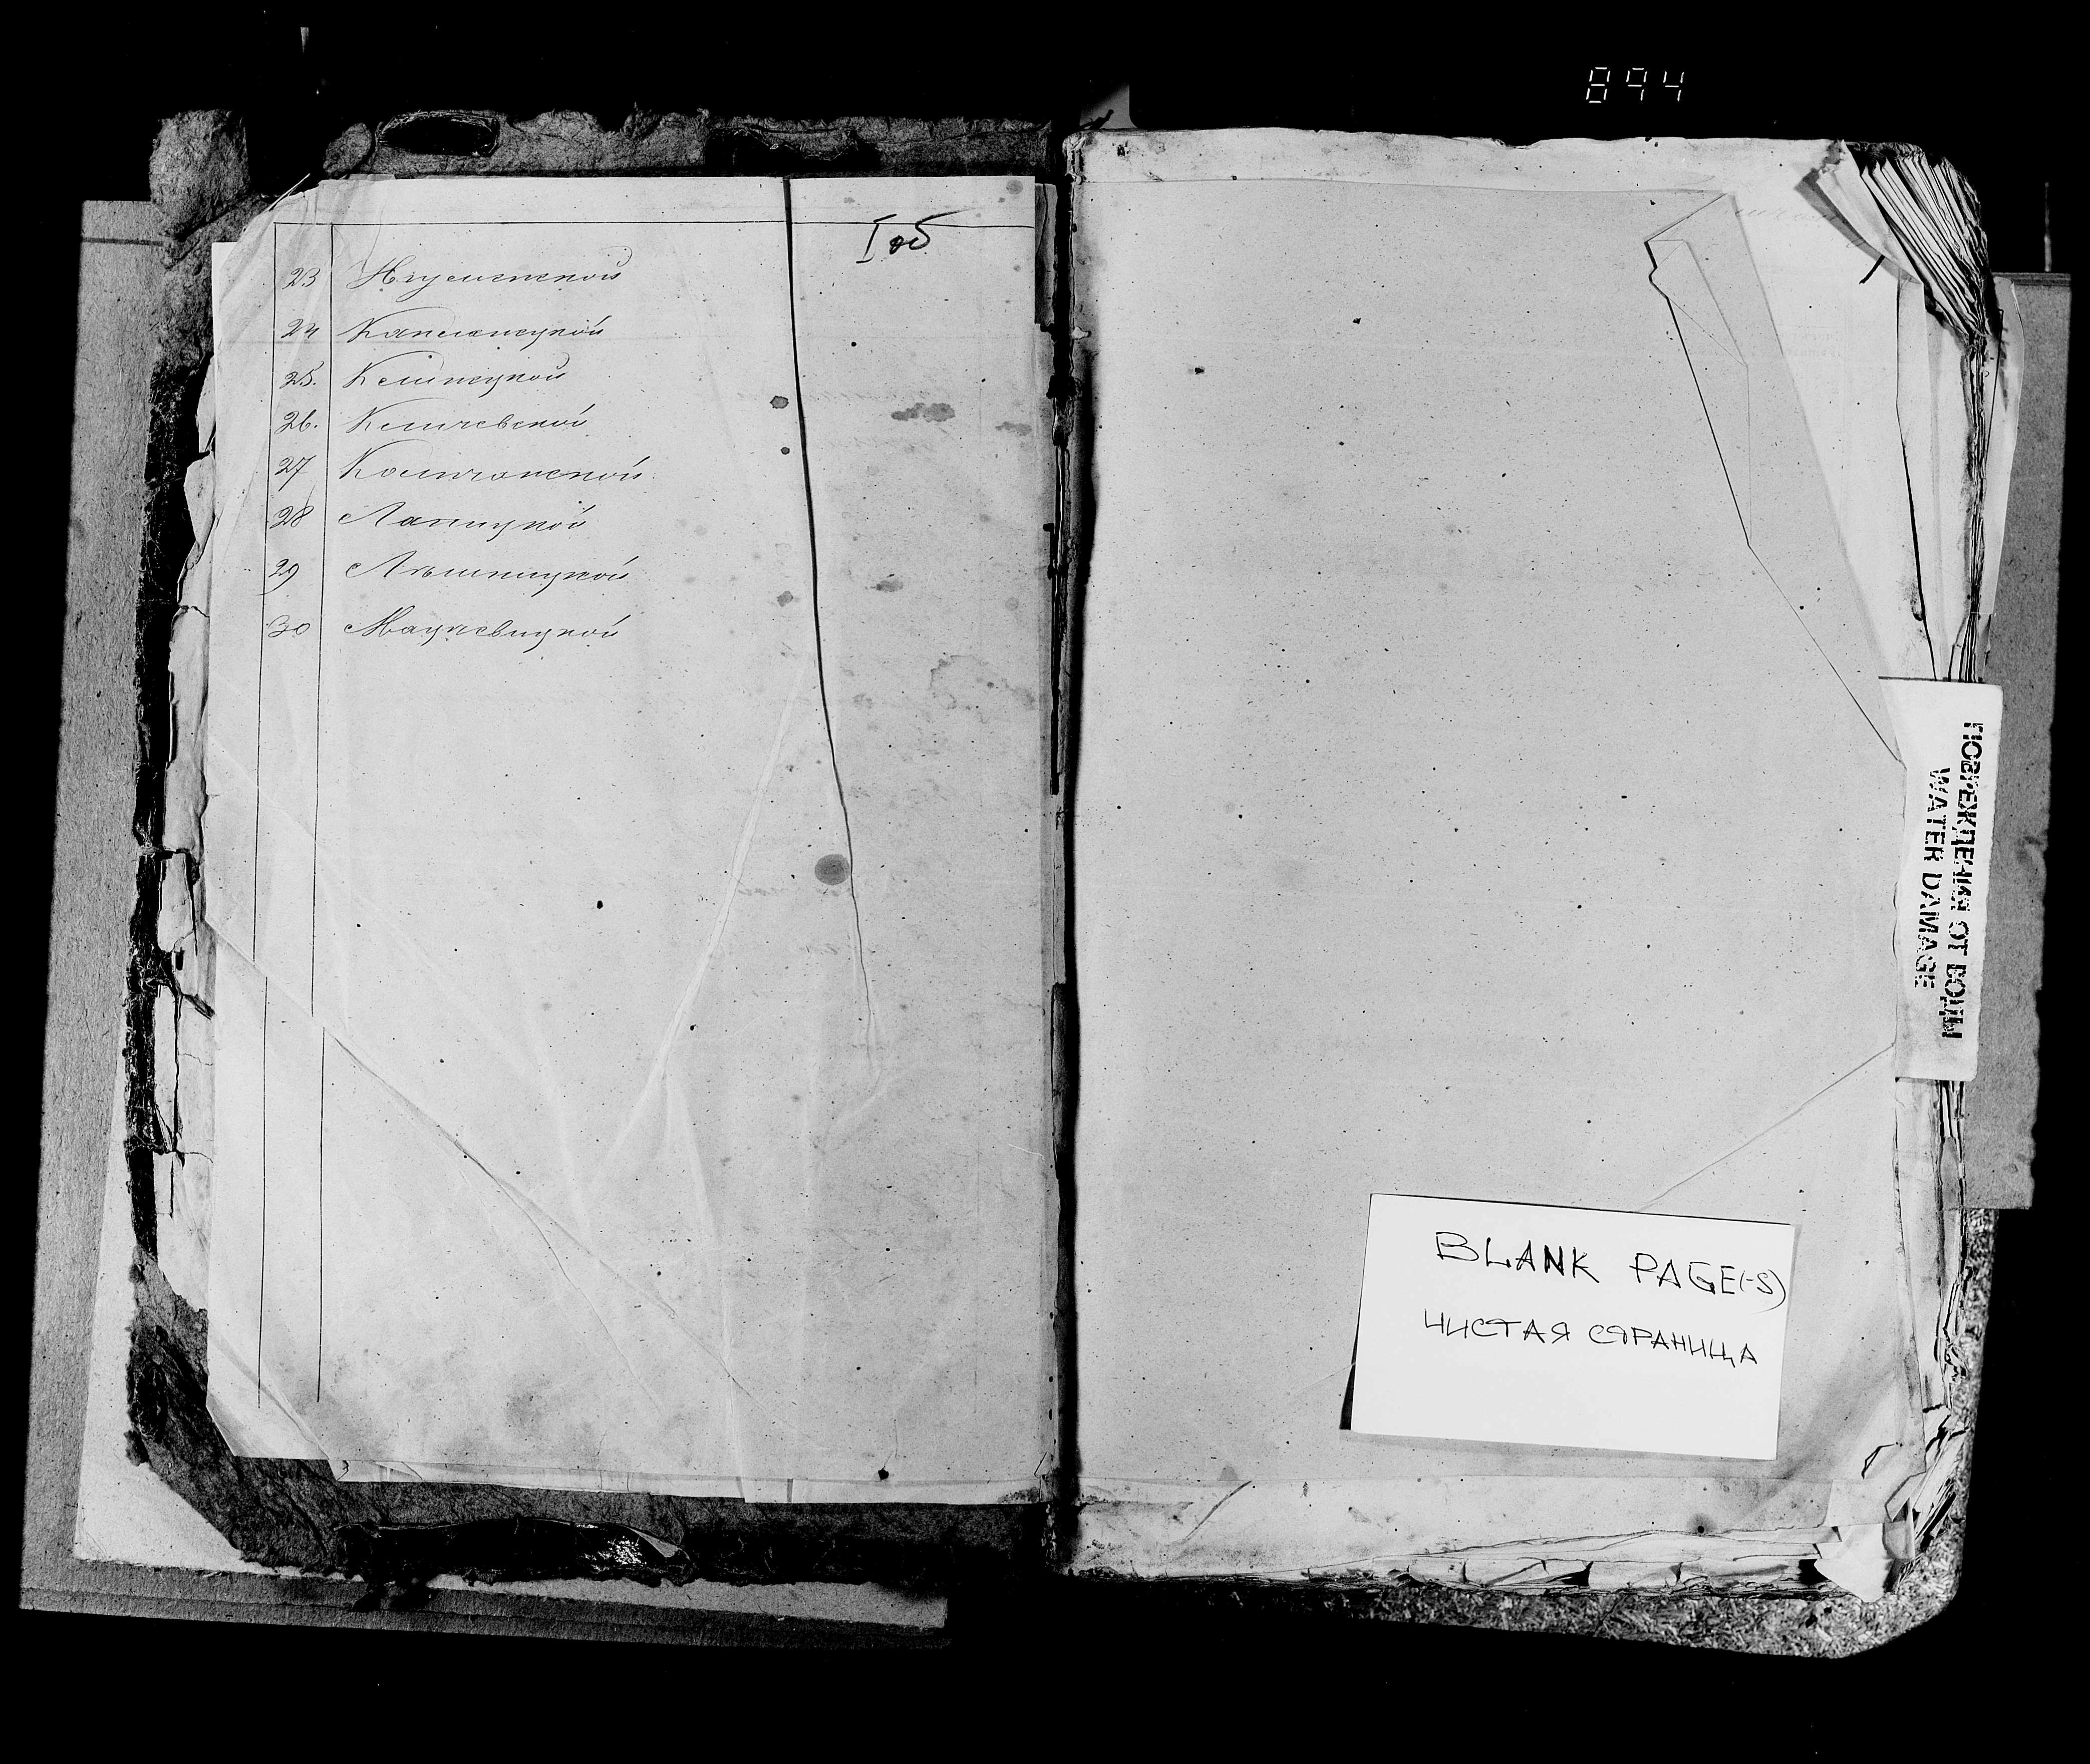 894
I об
23 Игуменской
24 Капланецкой
25. Клинецкой
26. Кличевской
27 Колчанской
28 Лапицкой
29 Лешницкой
30 Мацевицкой
ПОВРЕЖДЕНИЯ ОТ ВОДЫ
WATER DAMAGE
BLANK PAGE(-S)
ЧИСТАЯ СТРАНИЦА